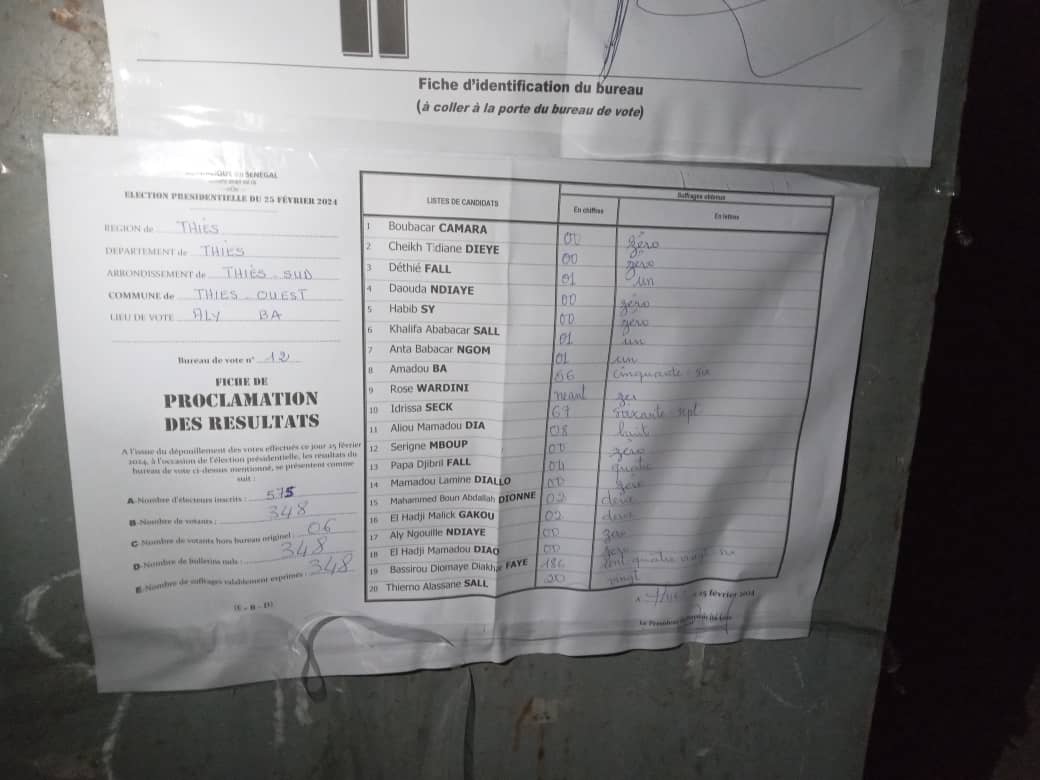 Fiche d'identification du bureau
(à coller à la porte du bureau de vote)
SENEGAL
ELECTION PRESIDENTIELLE DU 25 FÉVRIER 2024
REGION de THIÈS
DEPARTEMENT de THIÈS
ARRONDISSEMENT de THIÈS-SUD
COMMUNE de THIES-OUEST
LIEU DE VOTE ALY BA
Bureau de vote n° 12
FICHE DE
PROCLAMATION
DES RESULTATS
A l'issue du dépouillement des votes effectués ce jour 25 février
2024, à l'occasion de l'élection présidentielle, les résultats du
bureau de vote ci-dessus mentionné, se présentent comme
suit :
A-Nombre d'électeurs inscrits : 575
B-Nombre de votants : 348
C-Nombre de votants hors bureau originel 06
D-Nombre de bulletins nuls : 348
E-Nombre de suffrages valablement exprimés : 348
(E = B - D)
LISTES DE CANDIDATS Suffrages obtenus
En chiffres En lettres
1 Boubacar CAMARA 00 zéro
2 Cheikh Tidiane DIEYE 00 zéro
3 Déthié FALL 01 un
4 Daouda NDIAYE 00 zéro
5 Habib SY 00 zéro
6 Khalifa Ababacar SALL 01 un
7 Anta Babacar NGOM 01 un
8 Amadou BA 56 cinquante-six
9 Rose WARDINI neant
10 Idrissa SECK 67 soixante sept
11 Aliou Mamadou DIA 08 huit
12 Serigne MBOUP 00 zéro
13 Papa Djibril FALL 04 quatre
14 Mamadou Lamine DIALLO 00 zéro
15 Mahammed Boun Abdallah DIONNE 02 deux
16 El Hadji Malick GAKOU 02 deux
17 Aly Ngouille NDIAYE 00 zero
18 El Hadji Mamadou DIAO 00 zero
19 Bassirou Diomaye Diakhar FAYE 186 cent quatre vingt six
20 Thierno Alassane SALL 20 vingt
25 février 2024
Le Président